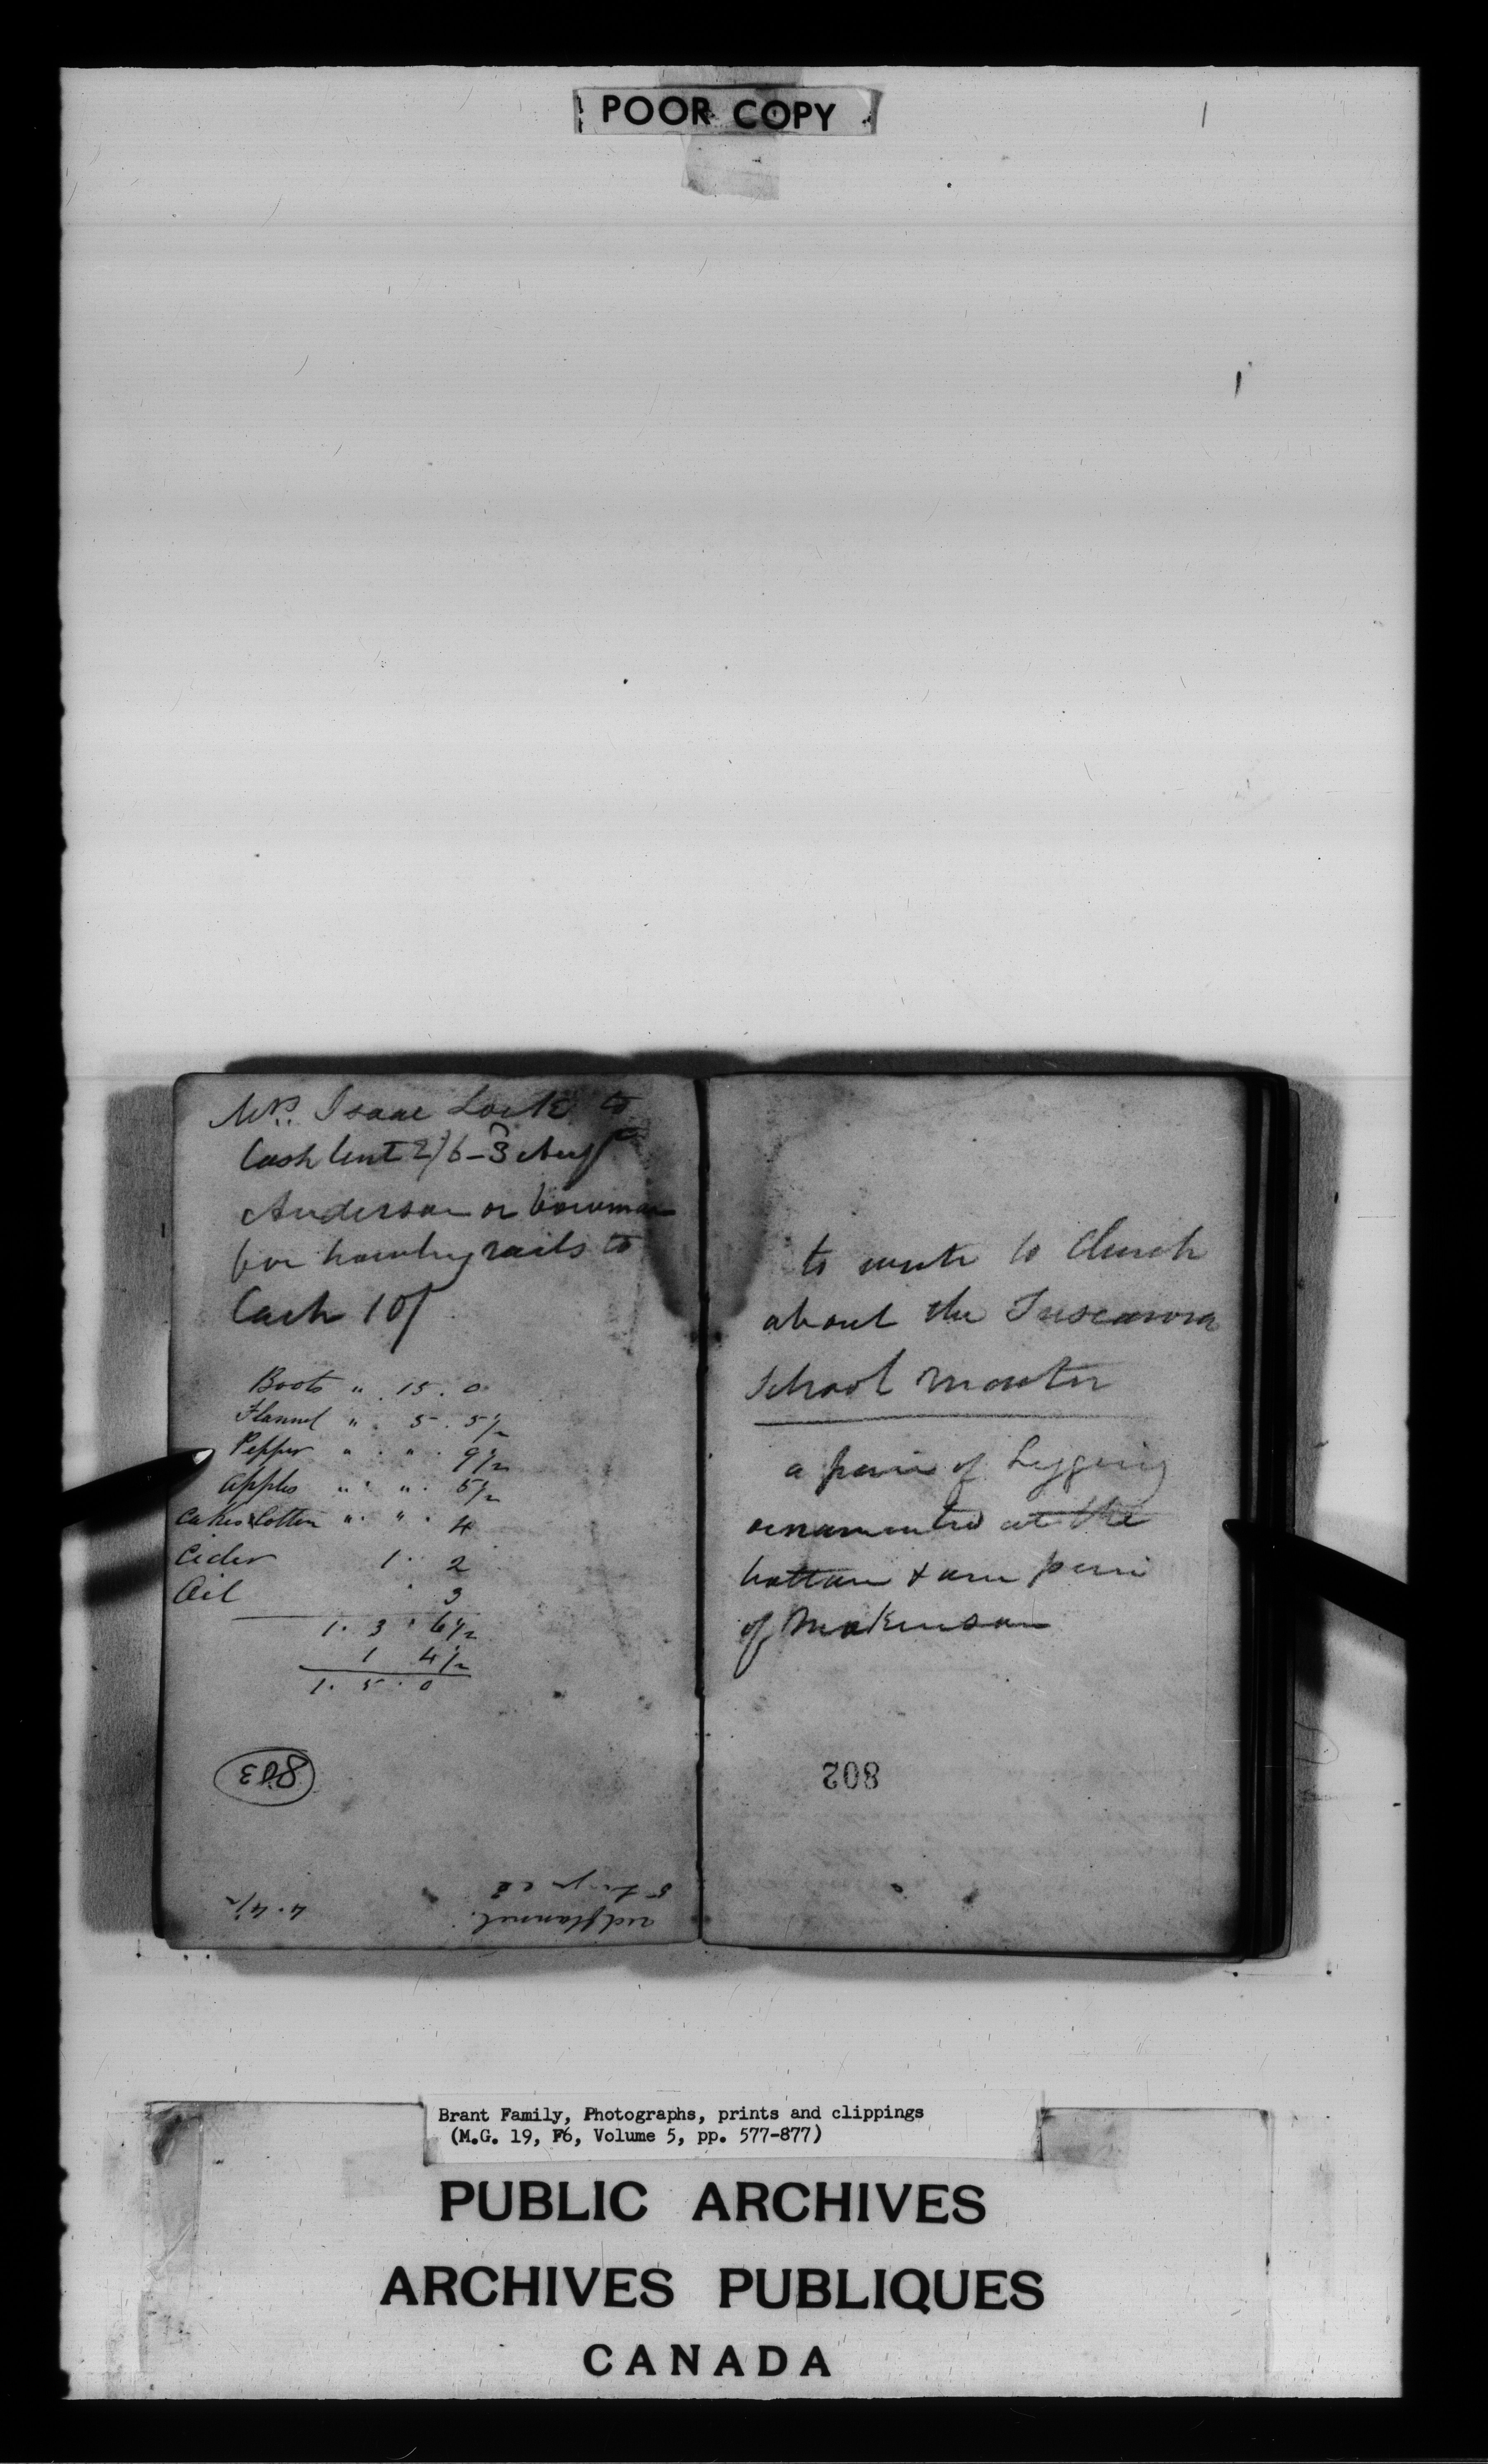 POOR COPY
Mrs. Isaac Lock to
Cash lent 2/6 - 3
Anderson or bowman
for hauling rails to
Cash 10/
Boots " 15 . 0
Flannel " . 5 . 5 1/2
Pepper " . " . 9 1/2
apples " . " . 5 1/2
Cakes & Cotton " . " . 4
Cider 1 . 2
Oil . 3
1 . 3 . 6 1/2
1 4 1/2
1 . 5 . 0
803
red flannel. 4 . 4 1/2
to write to Church
about the Tuscarora
School master
a pair of Leggings
ornamented at the
bottom & one pair
of Mokinsons
802
Brant Family, Photographs, prints and clippings
(M.G. 19, F6, Volume 5, pp. 577-877)
PUBLIC ARCHIVES
ARCHIVES PUBLIQUES
CANADA